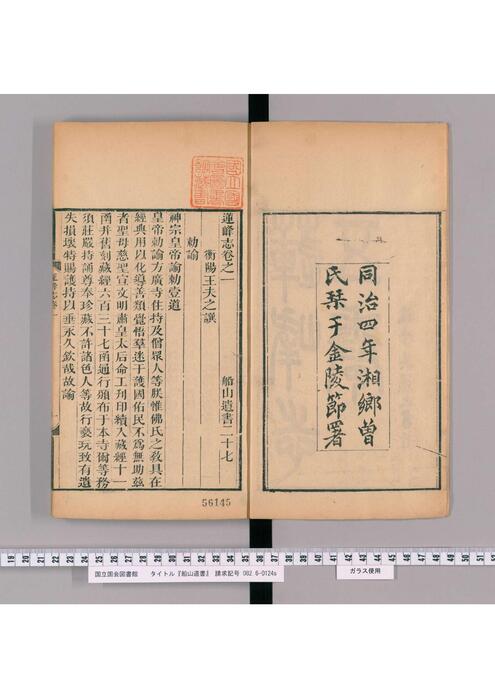 同治四年湘鄉曾
氏栞于金陵節署
蓮峰志卷之一 船山遺書二十七
衡陽王夫之譔
勅諭
神宗皇帝諭勅壹道
皇帝勅諭方廣寺住持及僧眾人等朕惟佛氏之敎具在
經典用以化導善類覺悟羣迷于護國佑民不爲無助茲
者聖母慈聖宣文明肅皇太后命工刋印續入藏經十一
函并舊刻藏經六百三十七函通行頒布于本寺爾等務
須莊嚴持誦尊奉珍藏不許諸色人等故行褻玩致有遺
失損壞特賜護持以垂永久欽哉故諭
56145
19 20 21 22 23 24 25 26 27 28 29 30 31 32 33 34 35 36 37 38 39 40 41 42 43 44 45 46 47 48 49 50 51 52
国立国会図書館 タイトル『船山遺書』 請求記号 082 6-0124s
ガラス使用